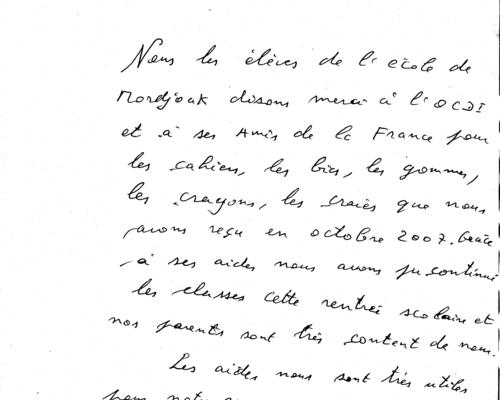 Nous les élèves de l'école de
Mordjoak disons merci à l'OCDI
et à ses Amis de la France pour
les cahiers, les bics, les gommes,
les crayons, les craies que nous
avons reçu en octobre 2007. Grâce
à ses aides nous avons pu continué
les classes cette rentrée scolaire et
nos parents sont très content de nous.
Les aides nous sont très utiles
pour notre